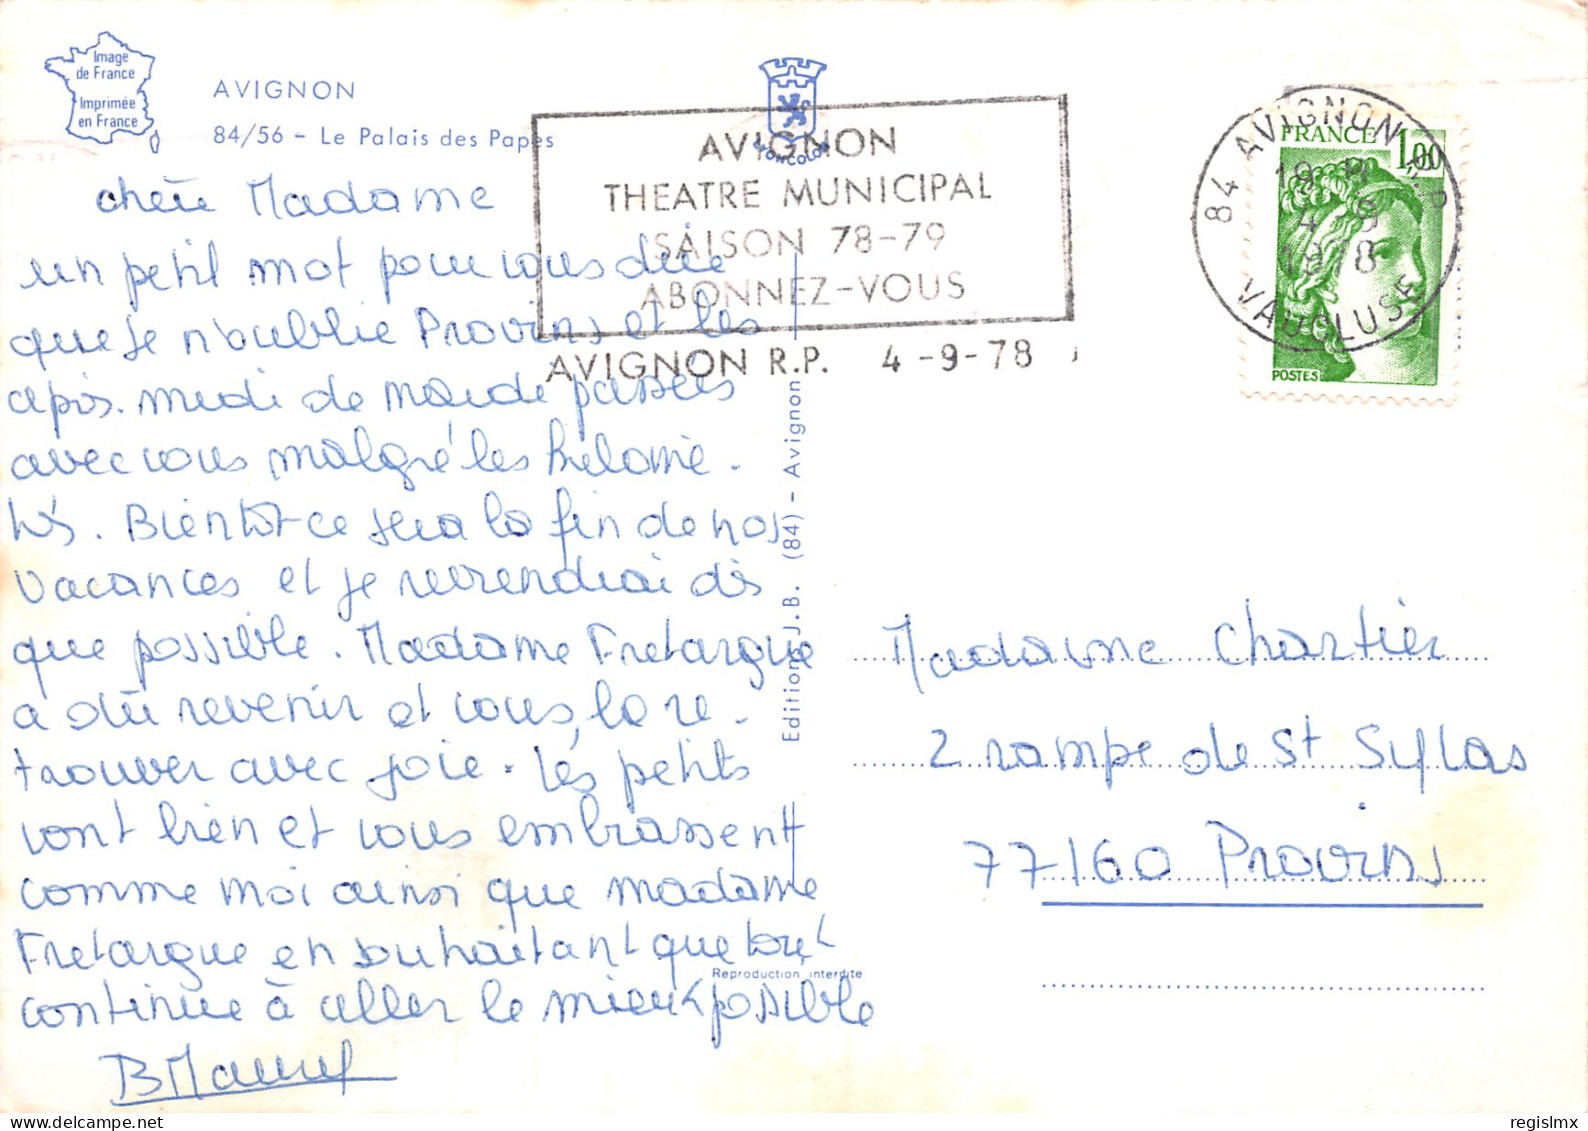 Image
de France
Imprimée
en France
AVIGNON
84/56 - Le Palais des Papes
LYONCOLOR
AVIGNON
THEATRE MUNICIPAL
SAISON 78-79
ABONNEZ-VOUS
AVIGNON R.P. 4-9-78
84 AVIGNON R.P
4-9
1978
VAUCLUSE
FRANCE 1,00
POSTES
chère Madame
un petit mot pour vous dire
que je n'oublie Provins et les
après-midi de marde passées
avec vous malgré les
Bientôt ce sera la fin de nos
vacances et je reviendrai dès
que possible. Madame Fretargue
a dû revenir et vous la re-
trouver avec joie. Les petits
vont bien et vous embrassent
comme moi ainsi que madame
Fretargue en souhaitant que tout
continue à aller le mieux possible
Editions J.B. (84) - Avignon
Reproduction interdite
Madame Chartier
2 rampe de St Syllas
77160 Provins
regislmx